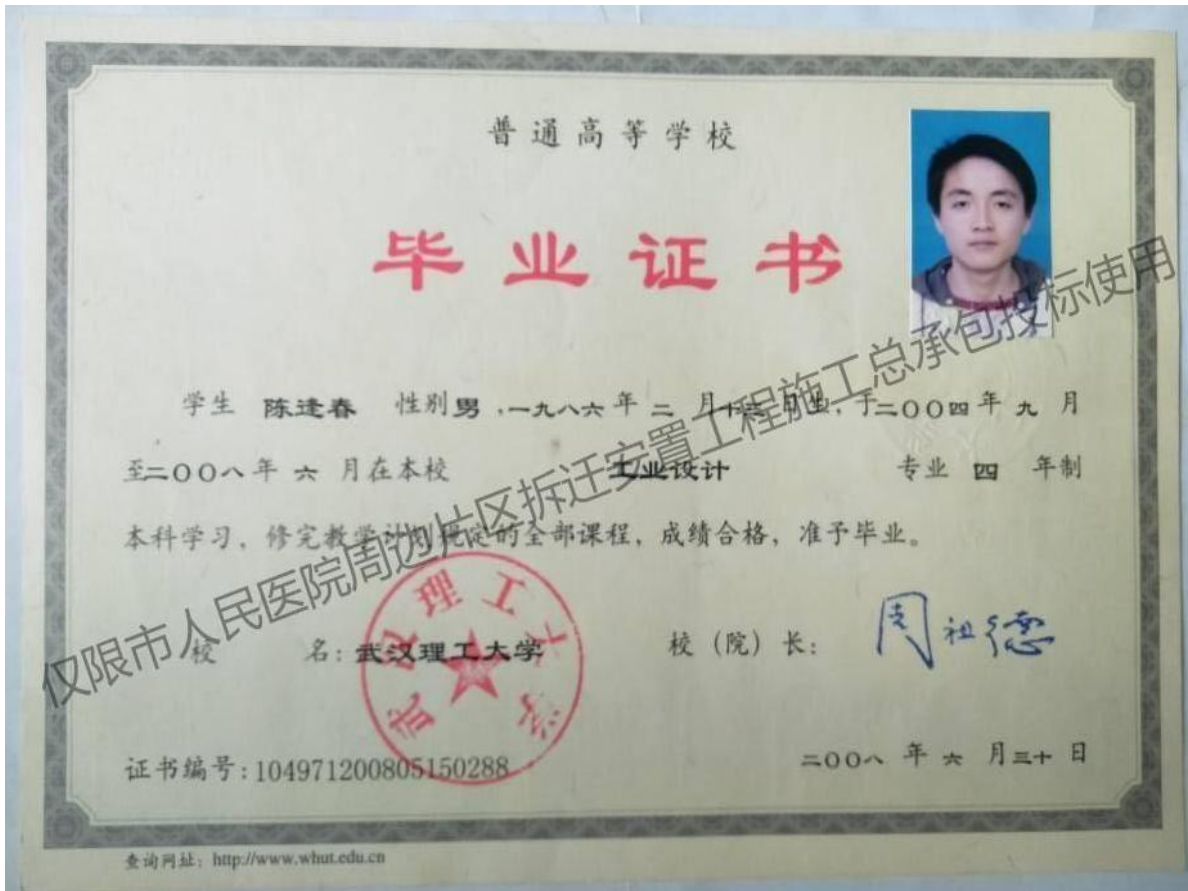 普通高等学校
毕业证书
学生 陈逢春 性别 男 ，一九八六年 二 月 日生，于二〇〇四年 九 月
至二〇〇八年 六 月在本校 工业设计 专业 四 年制
本科学习，修完教学计划规定的全部课程，成绩合格，准予毕业。
校 名：武汉理工大学 校（院）长：周祖德
武汉理工大学
证书编号：104971200805150288 二〇〇八 年 六 月三十 日
查询网址：http://www.whut.edu.cn
仅限市人民医院周边片区拆迁安置工程施工总承包投标使用